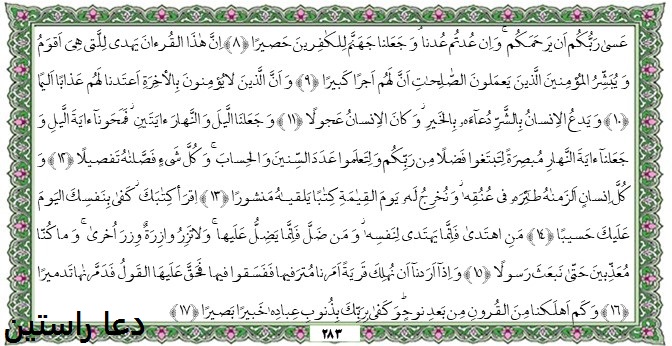 عَسىٰ رَبُّكُم أَن يَرحَمَكُم ۚ وَإِن عُدتُم عُدنا ۘ وَجَعَلنا جَهَنَّمَ لِلكافِرينَ حَصيرًا ﴿٨﴾ إِنَّ هٰذَا القُرءانَ يَهدى لِلَّتى هِىَ أَقوَمُ
وَ يُبَشِّرُ المُؤمِنينَ الَّذينَ يَعمَلونَ الصّالِحاتِ أَنَّ لَهُم أَجرًا كَبيرًا ﴿٩﴾ وَ أَنَّ الَّذينَ لايُؤمِنونَ بِالأخِرَةِ أَعتَدنا لَهُم عَذابًا أَليمًا
﴿١٠﴾ وَ يَدعُ الإِنسانُ بِالشَّرِّ دُعآءَهۥ بِالخَيرِ ۖ وَ كانَ الإِنسانُ عَجولًا ﴿١١﴾ وَ جَعَلنَا الَّيلَ وَ النَّهارَ ءايَتَينِ ۖ فَمَحَونآ ءايَةَ الَّيلِ وَ
جَعَلنآ ءايَةَ النَّهارِ مُبصِرَةً لِتَبتَغوا فَضلًا مِن رَبِّكُم وَ لِتَعلَموا عَدَدَ السِّنينَ وَ الحِسابَ ۚ وَ كُلَّ شَىءٍ فَصَّلناهُ تَفصيلًا ﴿١٢﴾ وَ
كُلَّ إِنسانٍ أَلزَمناهُ طائِرَهۥ فى عُنُقِهِ ۖ وَ نُخرِجُ لَهۥ يَومَ القِيٰمَةِ كِتٰبًا يَلقٮٰهُ مَنشورًا ﴿١٣﴾ اِقرَأ كِتٰبَكَ كَفىٰ بِنَفسِكَ اليَومَ
عَلَيكَ حَسيبًا ﴿١٤﴾ مَنِ اهتَدىٰ فَإِنَّما يَهتَدى لِنَفسِهِ ۖ وَ مَن ضَلَّ فَإِنَّما يَضِلُّ عَلَيها ۚ وَ لاتَزِرُ وازِرَةٌ وِزرَ أُخرىٰ ۗ وَ ما كُنّا
مُعَذِّبينَ حَتّىٰ نَبعَثَ رَسولًا ﴿١٥﴾ وَ إِذآ أَرَدنآ أَن نُهلِكَ قَريَةً أَمَرنا مُترَفيها فَفَسَقوا فيها فَحَقَّ عَلَيهَا القَولُ فَدَمَّرنٰها تَدميرًا
﴿١٦﴾ وَ كَم أَهلَكنا مِنَ القُرونِ مِن بَعدِ نوحٍ ۗ وَ كَفىٰ بِرَبِّكَ بِذُنوبِ عِبادِهِ خَبيرًا بَصيرًا ﴿١٧﴾
دعا راستین
٢٨٣